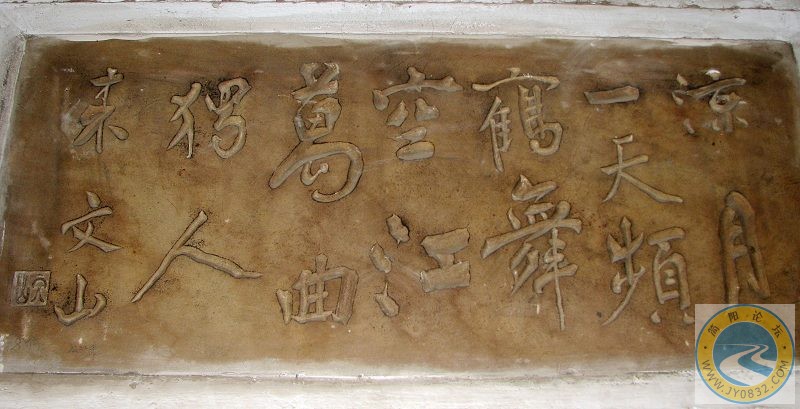 凉月
一天頻
鶴舞
空江
萬曲
獨人
来文山
简阳论坛
WWW.JY0832.COM